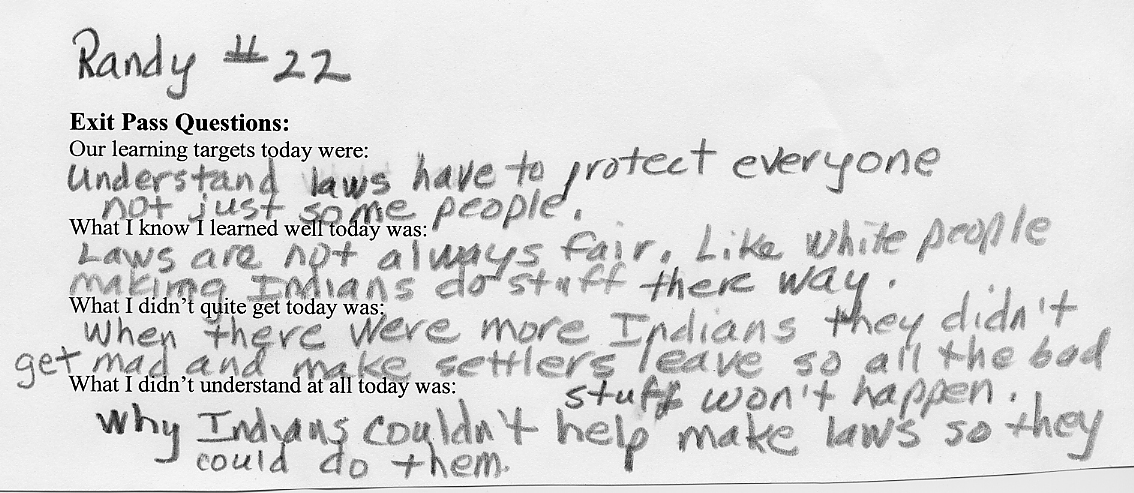 Randy #22
Exit Pass Questions:
Our learning targets today were:
Understand laws have to protect everyone
not just some people.
What I know I learned well today was:
Laws are not always fair. Like white people
making Indians do stuff there way.
What I didn't quite get today was:
When there were more Indians they didn't
get mad and make settlers leave so all the bad
stuff won't happen.
What I didn't understand at all today was:
Why Indians couldn't help make laws so they
could do them.